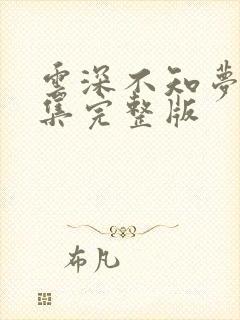 雲深不知夢
集完整版
布凡